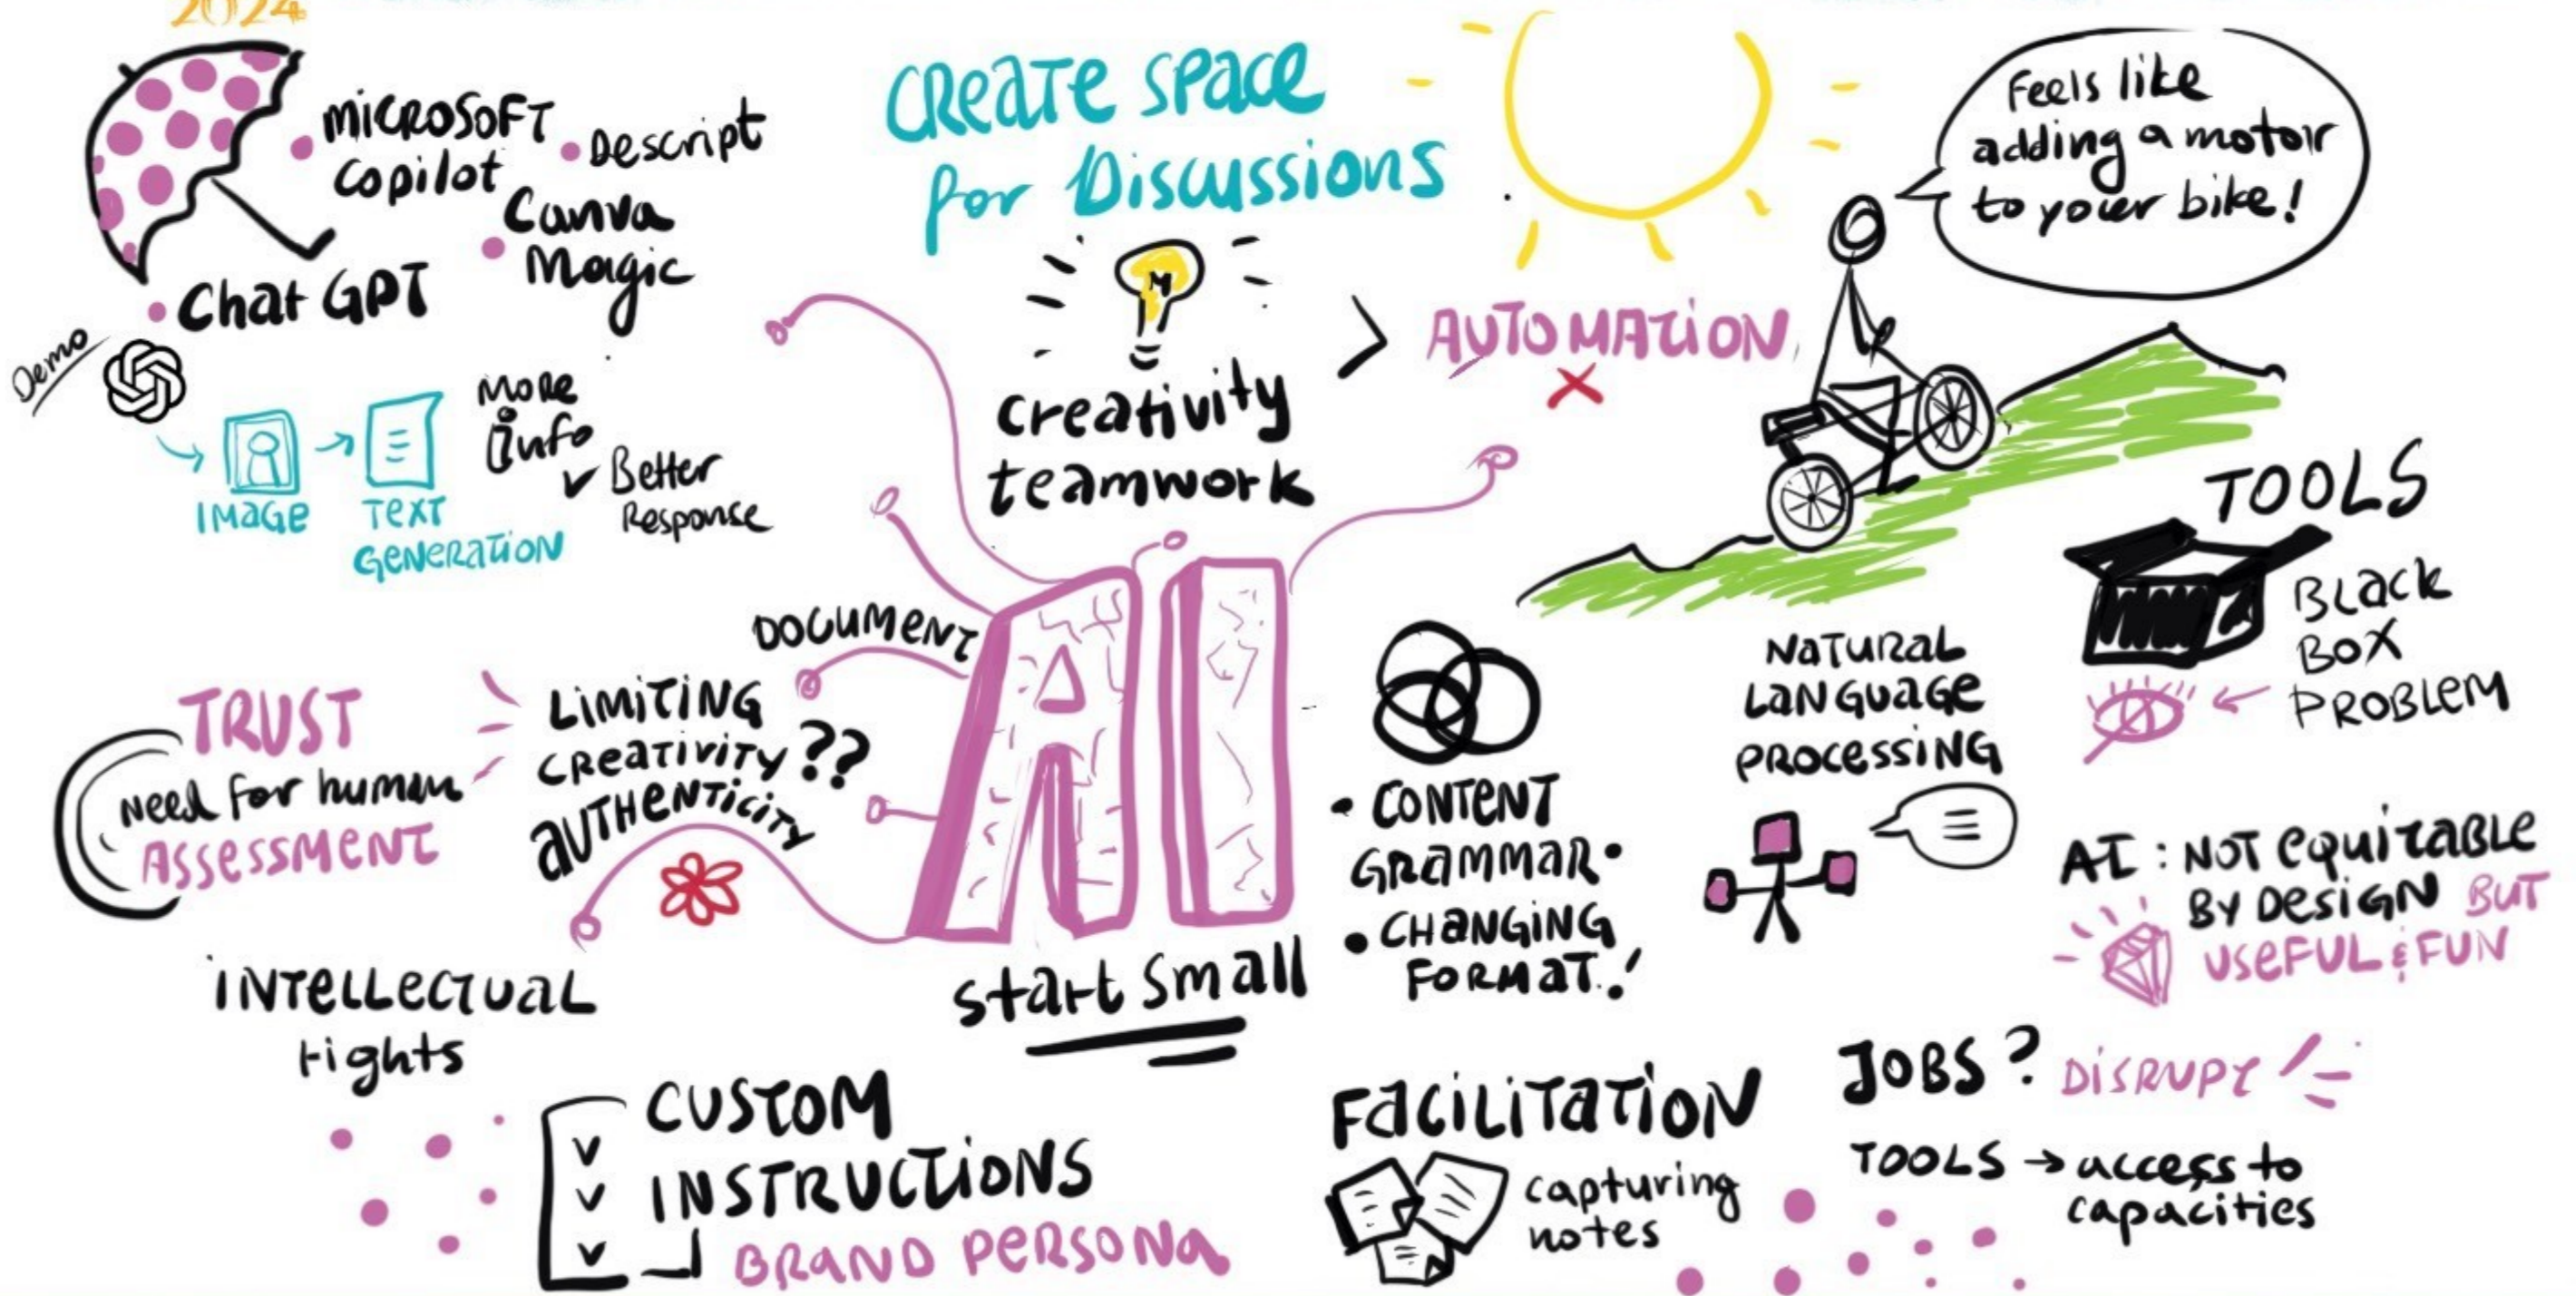 2024
MICROSOFT
Copilot
Descript
Canva
Magic
Chat GPT
Demo
IMAGE
TEXT
GENERATION
MORE
info
Better
Response
CREATE SPACE
for Discussions
creativity
teamwork
>
AUTOMATION
Feels like
adding a motor
to your bike!
TOOLS
BLACK
BOX
PROBLEM
DOCUMENT
TRUST
Need for human
ASSESSMENT
LIMITING
CREATIVITY ??
AUTHENTICITY
AI
start small
• CONTENT
GRAMMAR •
• CHANGING
FORMAT!
NATURAL
LANGUAGE
PROCESSING
AI: NOT equitable
BY DESIGN BUT
USEFUL & FUN
INTELLECTUAL
rights
CUSTOM
INSTRUCTIONS
BRAND PERSONA
FACILITATION
capturing
notes
JOBS? DISRUPT!
TOOLS → access to
capacities